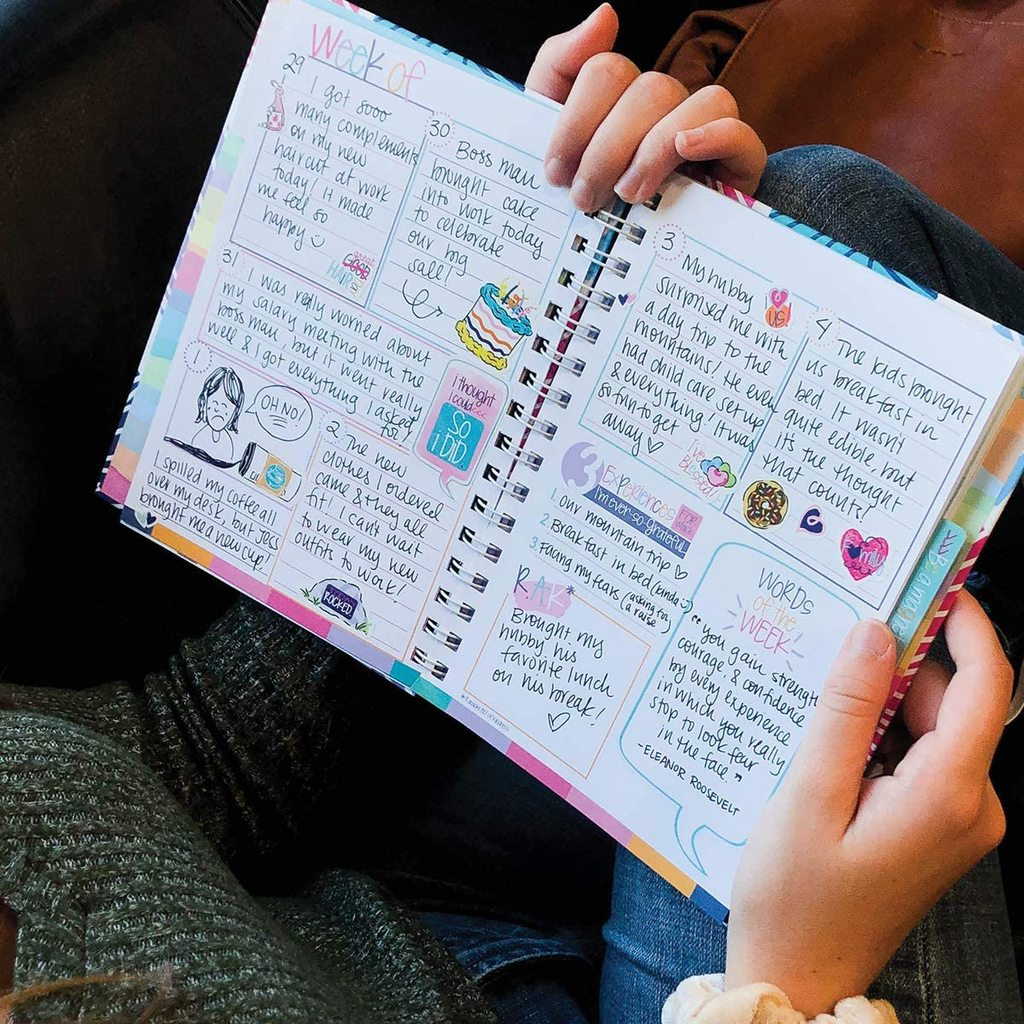 Week of
29
I got sooo
many complements
on my new
haircut at work
today! It made
me feel so
happy
great
GOOD
HAIR
30
Boss man
brought cake
into work today
to celebrate
our big
sale!
31
I was really worried about
my salary meeting with the
boss man, but it went really
well & I got everything I asked
for!
I thought
I could...
SO
I DID.
1
OH NO!
I spilled my coffee all
over my desk, but Joss
brought me a new cup!
2 The new
clothes I ordered
came & they all
fit! I can't wait
to wear my new
outfits to work!
ROCKED
3
My hubby
surprised me with
a day trip to the
mountains! He even
had child care set up
& everything! It was
so fun to get
away
US
I'm
Blessed
4
The kids brought
us breakfast in
bed. It wasn't
quite edible, but
it's the thought
that counts!
Family
3 EXPERIENCES
I'm ever-so-grateful
FOR THIS WEEK
1. Our mountain trip
2. Breakfast in bed (kinda)
3. Facing my fears (asking for
a raise)
RAK*
Brought my
hubby his
favorite lunch
on his break!
WORDS
of the
WEEK
"You gain strength
courage, & confidence
by every experience
in which you really
stop to look fear
in the face."
-ELEANOR ROOSEVELT